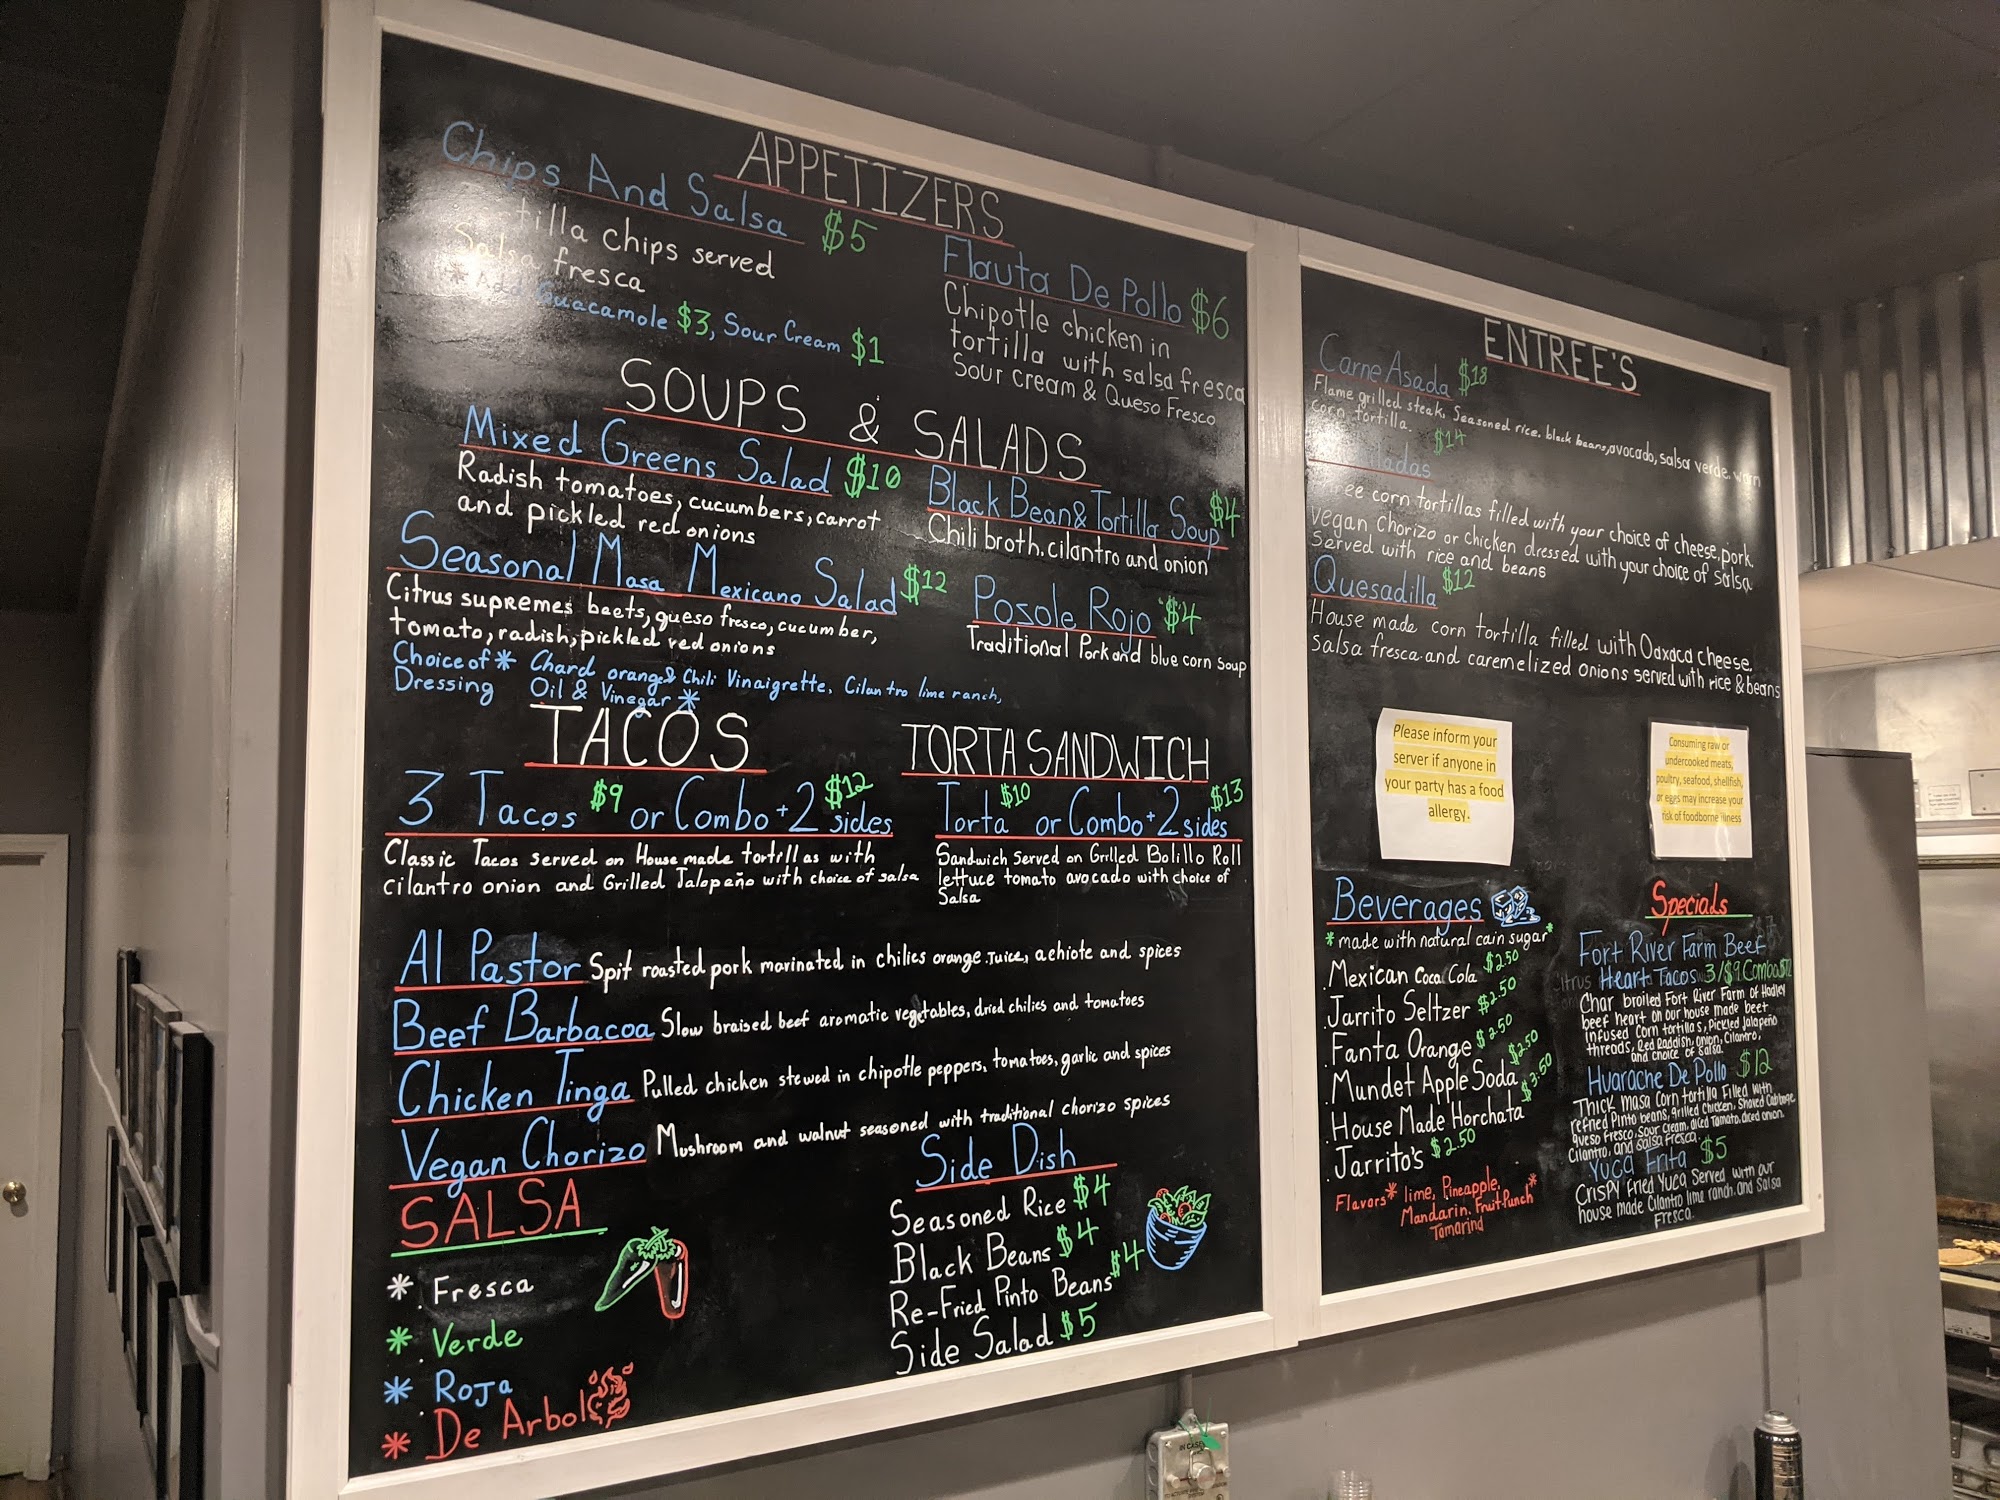 APPETIZERS
Chips And Salsa $5
tilla chips served
Salsa fresca
*Add Guacamole $3, Sour Cream $1
Flauta De Pollo $6
Chipotle chicken in
tortilla with salsa fresca
Sour cream & Queso Fresco
SOUPS & SALADS
Mixed Greens Salad $10
Radish tomatoes, cucumbers, carrot
and pickled red onions
Black Bean & Tortilla Soup $4
Chili broth, cilantro and onion
Seasonal Masa Mexicano Salad $12
Citrus supremes beets, queso fresco, cucumber,
tomato, radish, pickled red onions
Posole Rojo $4
Traditional Pork and blue corn soup
Choice of * Chard orange & Chili Vinaigrette, Cilantro lime ranch,
Dressing Oil & Vinegar *
TACOS
3 Tacos $9 or Combo + 2 sides $12
Classic Tacos served on House made tortillas with
cilantro onion and Grilled Jalapeño with choice of salsa
TORTA SANDWICH
Torta $10 or Combo + 2 sides $13
Sandwich served on Grilled Bolillo Roll
lettuce tomato avocado with choice of
Salsa
Al Pastor Spit roasted pork marinated in chilies orange Juice, achiote and spices
Beef Barbacoa Slow braised beef aromatic vegetables, dried chilies and tomatoes
Chicken Tinga Pulled chicken stewed in chipotle peppers, tomatoes, garlic and spices
Vegan Chorizo Mushroom and walnut seasoned with traditional chorizo spices
SALSA
* Fresca
* Verde
* Roja
* De Arbol
Side Dish
Seasoned Rice $4
Black Beans $4
Re-Fried Pinto Beans $4
Side Salad $5
ENTREE'S
Carne Asada $18
Flame grilled steak, Seasoned rice, black beans, avocado, salsa verde, warm
corn tortilla.
iladas $14
ree corn tortillas filled with your choice of cheese, pork,
vegan chorizo or chicken dressed with your choice of salsa
Served with rice and beans
Quesadilla $12
House made corn tortilla filled with Oaxaca cheese,
salsa fresca and caremelized onions served with rice & beans
Please inform your
server if anyone in
your party has a food
allergy.
Consuming raw or
undercooked meats,
poultry, seafood, shellfish,
or eggs may increase your
risk of foodborne illness
Beverages
*made with natural cain sugar*
Mexican Coca Cola $2.50
Jarrito Seltzer $2.50
Fanta Orange $2.50
Mundet Apple Soda $2.50
House Made Horchata $3.50
Jarrito's $2.50
Flavors* lime, Pineapple,
Mandarin, Fruit-Punch*
Tamarind
Specials
Fort River Farm Beef
Heart Tacos 3/$9 Combo $12
Char broiled Fort River Farm of Hadley
beef heart on our house made beet
infused Corn tortillas, Pickled Jalapeño
threads, Red Raddish, onion, Cilantro,
and choice of salsa
Huarache De Pollo $12
Thick masa Corn tortilla Filled with
refried Pinto beans, grilled Chicken, Shaved Cabbage
queso Fresco, Sour Cream, diced Tomato, diced onion,
Cilantro, and Salsa Fresca.
Yuca Frita $5
Crispy Fried Yuca Served with our
house made Cilantro lime ranch and Salsa
Fresca.